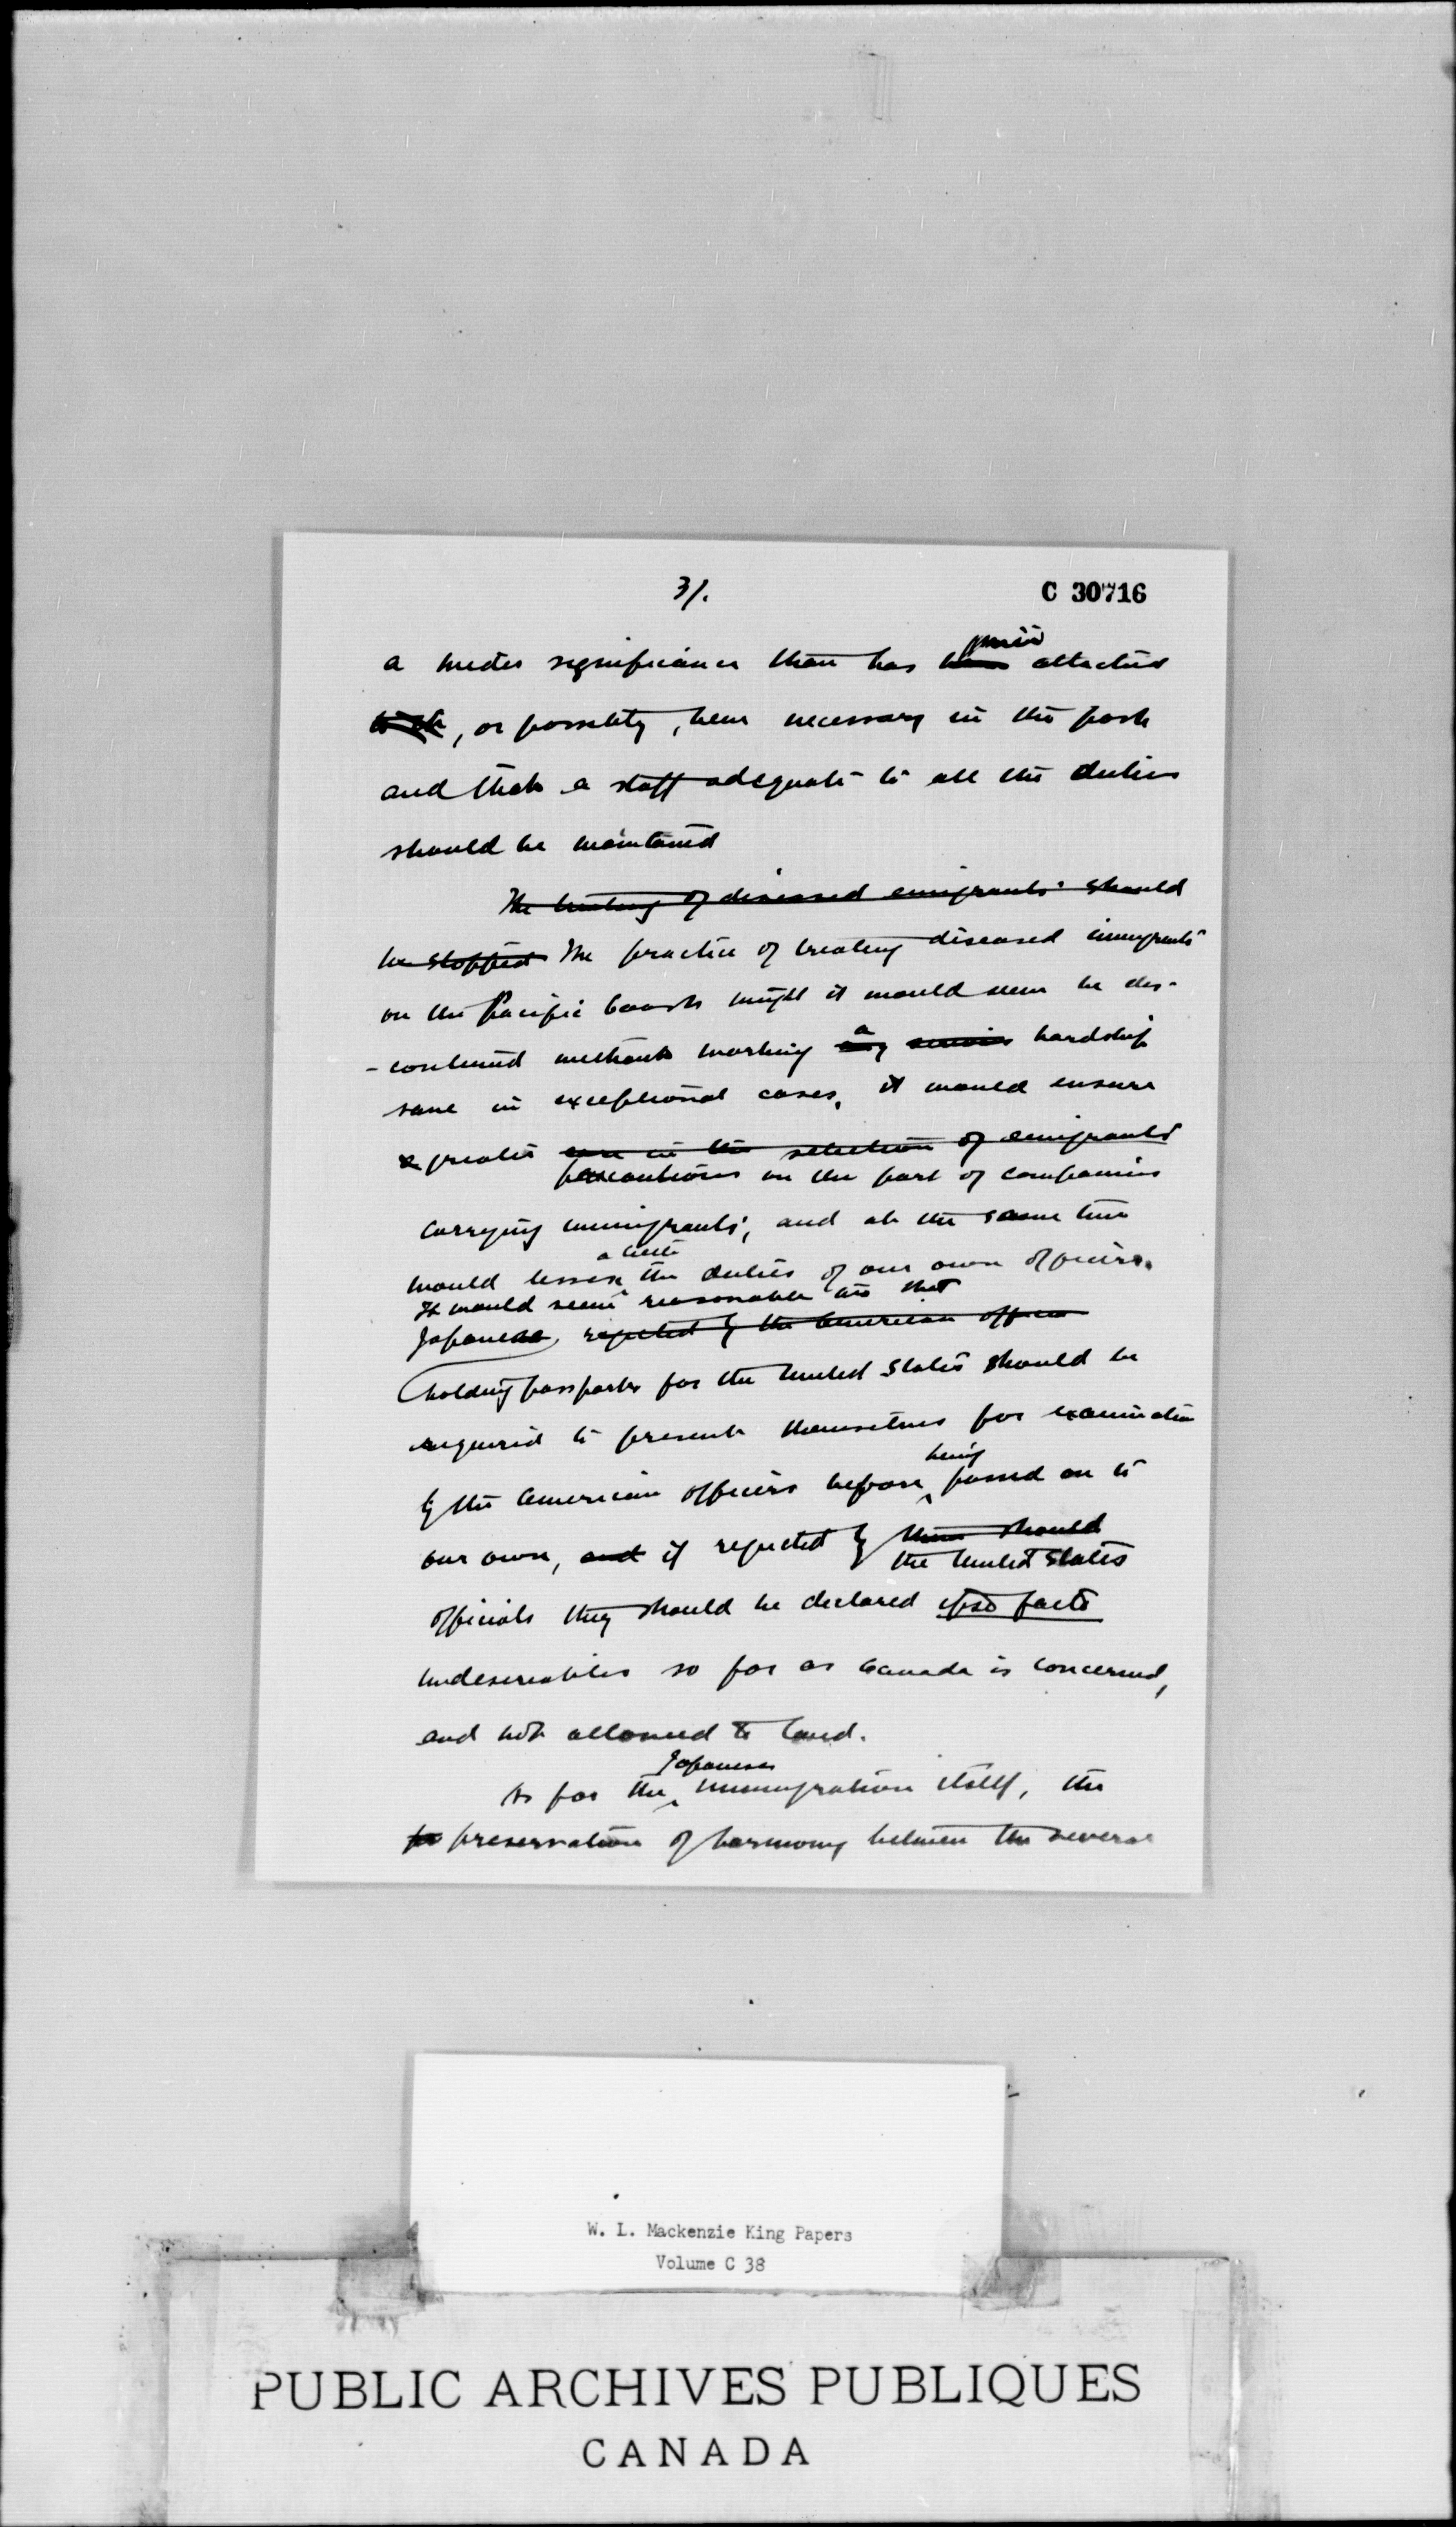 3/.
C 30716
a wider significance than has been attached
, or possibly, been necessary in the past
and that a staff adequate to all the duties
should be maintained
The treating of diseased emigrants should
be stopped The practice of treating diseased immigrants
on the Pacific Coast might it would seem be dis-
- continued without working a any serious hardship
save in exceptional cases, it would ensure
greater care in the selection of emigrants
precautions on the part of companies
carrying immigrants, and at the same time
a little
would lessen the duties of our own officers.
It would seem reasonable too that
Japanese rejected by the American officers
holding passports for the United States should be
required to present themselves for examination
being
by the American officers before passed on to
our own, and if rejected by them should
the United States
officials they should be declared ipso facto
undesireables so far as Canada is concerned,
and not allowed to land.
Japanese
As for the immigration itself, the
preservation of harmony between the several
W. L. Mackenzie King Papers
Volume C 38
PUBLIC ARCHIVES PUBLIQUES
CANADA